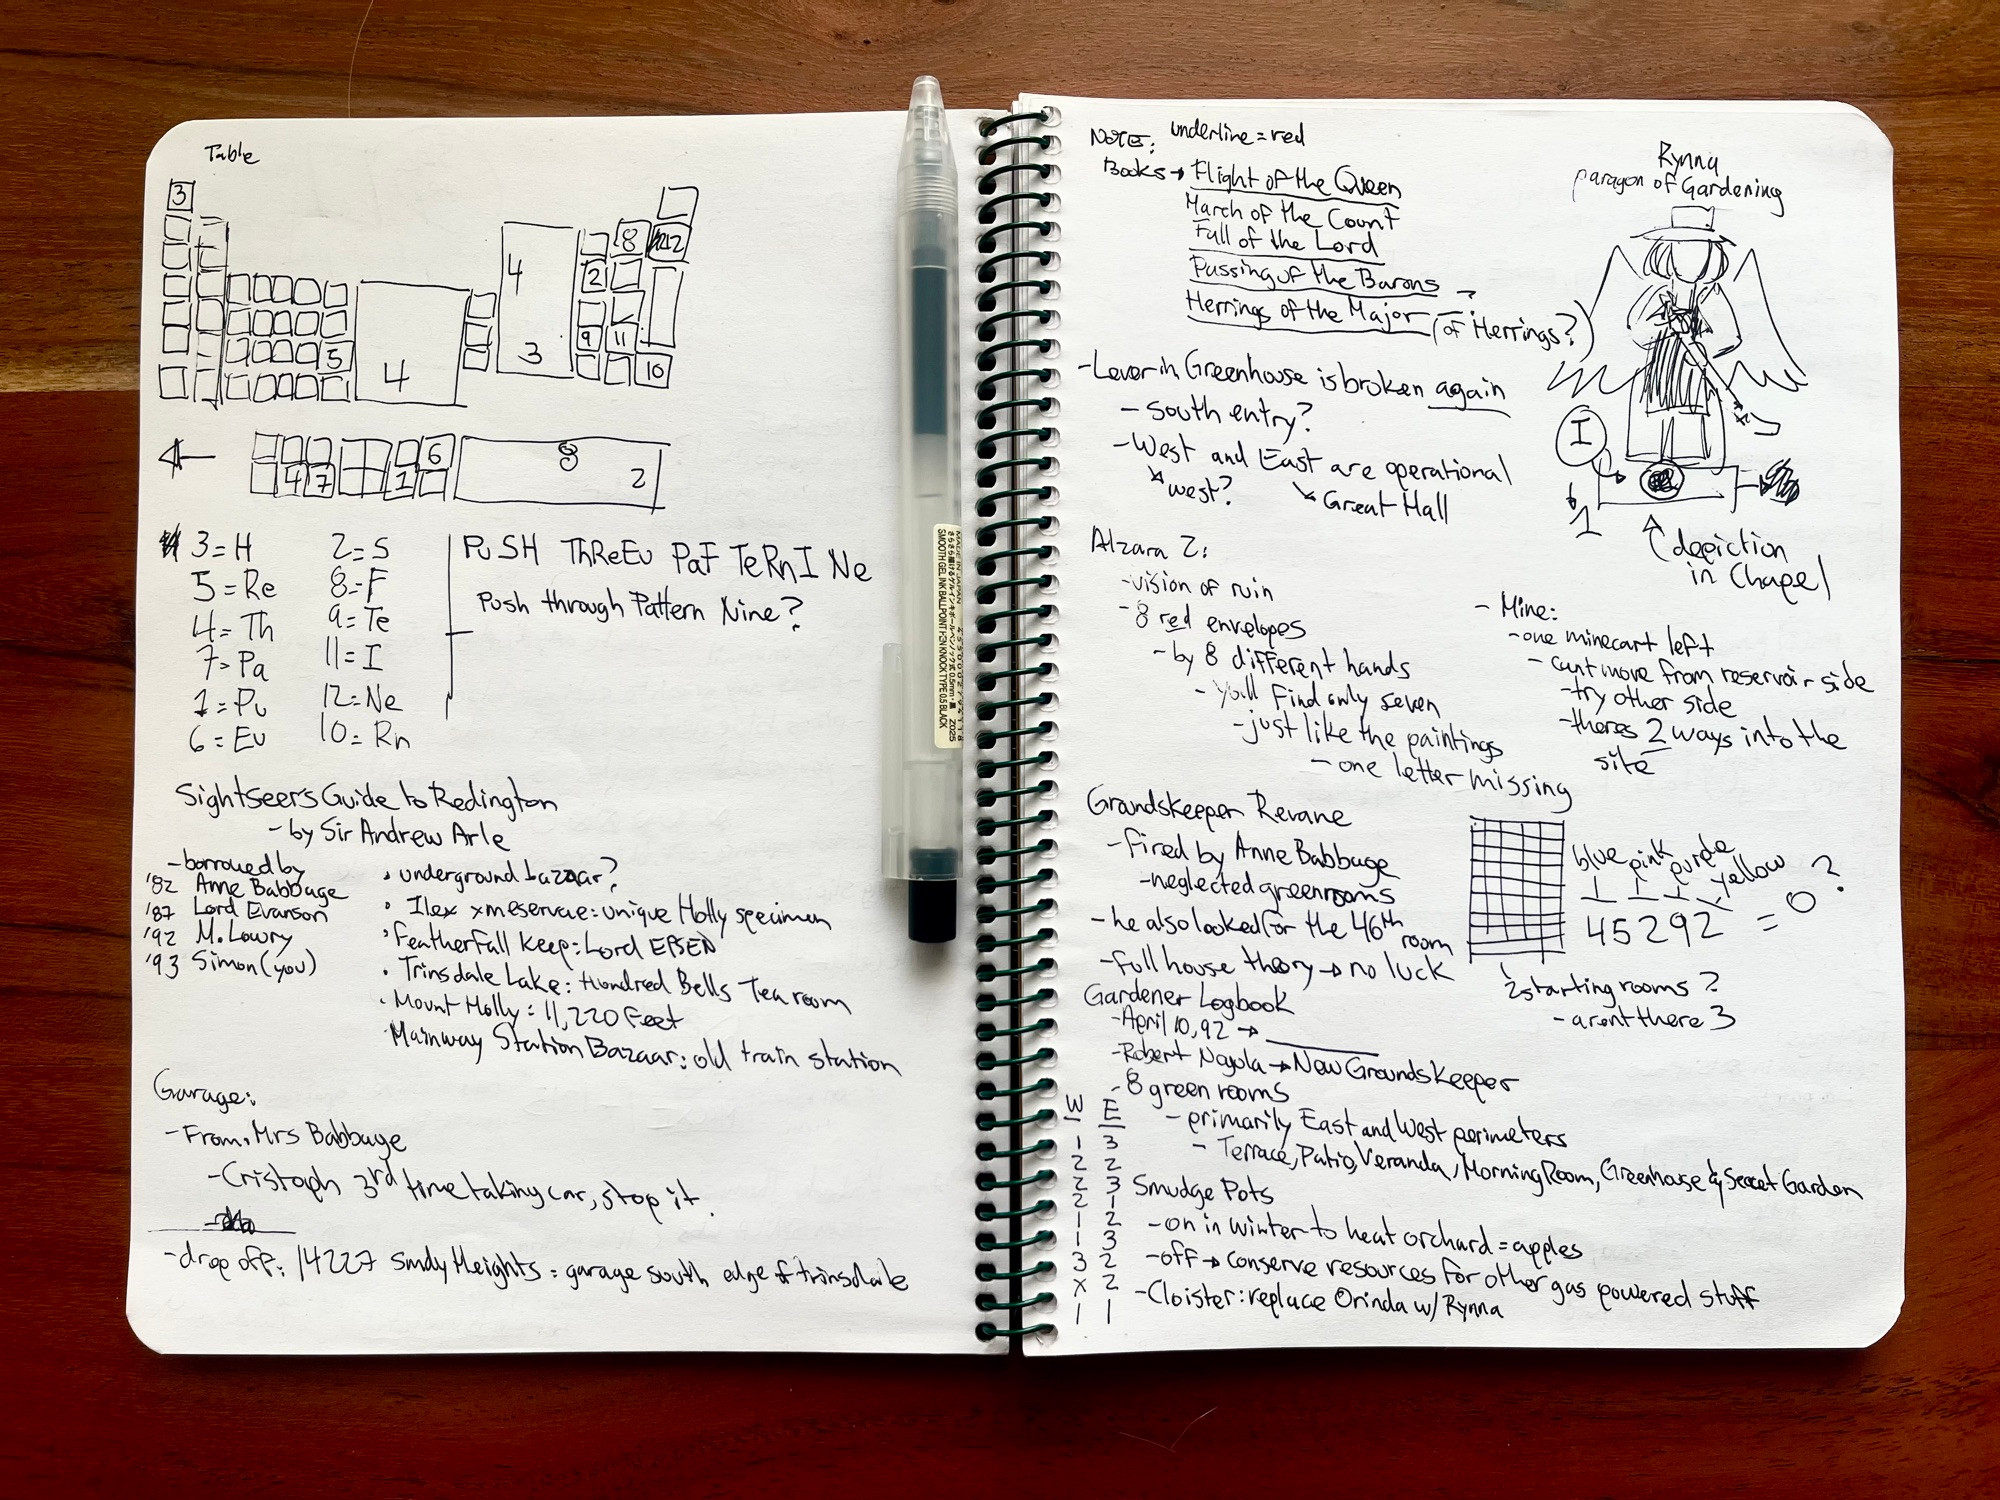 Table
3
5
4
4
3
2
8
12
9
11
10
4
7
1
6
8
2
3=H
5=Re
4=Th
7=Pa
1=Pu
6=Eu
2=S
8=F
9=Te
11=I
12=Ne
10=Rn
PuSH ThReEu PaF TeRnI Ne
Push through Pattern Nine?
Sightseers Guide to Redington
- by Sir Andrew Arle
-borrowed by
'82 Anne Babbage
'87 Lord Evanson
'92 M. Lowry
'93 Simon (you)
• underground bazaar?
• Ilex xmeserveae: unique Holly specimen
• Featherfall Keep: Lord EPSEN
• Trinsdale Lake: Hundred Bells Tea room
• Mount Holly: 11,220 Feet
• Mainway Station Bazaar: old train station
Garage:
-From, Mrs Babbage
-Cristoph 3rd time taking car, stop it.
-drop off: 14227 Smdy Heights = garage south edge of trinsdale
MADE IN JAPAN
SMOOTH GEL INK BALLPOINT PEN KNOCK TYPE 0.5 BLACK
2025
NOTE: underline = red
Books → Flight of the Queen
March of the Count
Fall of the Lord
Passing of the Barons
Herrings of the Major (of Herrings?)
-Lever in Greenhouse is broken again
- South entry?
-West and East are operational
west?
Great Hall
Rynna
paragon of Gardening
I
1
depiction
in Chapel
Alzara 2:
-vision of ruin
-8 red envelopes
-by 8 different hands
-you'll find only seven
-just like the paintings
- one letter missing
- Mine:
-one minecart left
- cant move from reservoir side
-try other side
-theres 2 ways into the
site
Groundskeeper Revane
-fired by Anne Babbage
-neglected greenrooms
-he also looked for the 46th room
-full house theory → no luck
blue pink purple yellow
45292 = 0 ?
2 starting rooms?
- arent there 3
Gardener Logbook
-April 10, 92 →
-Robert Nagola → New GroundsKeeper
-8 green rooms
- primarily East and West perimeters
- Terrace, Patio, Veranda, Morning Room, Greenhouse & Secret Garden
W E
1 3
2 2
2 3
2 1
1 2
1 3
3 2
x 2
1 1
Smudge Pots
-on in winter to heat orchard = apples
-off → conserve resources for other gas powered stuff
-Cloister: replace Orinda w/ Rynna